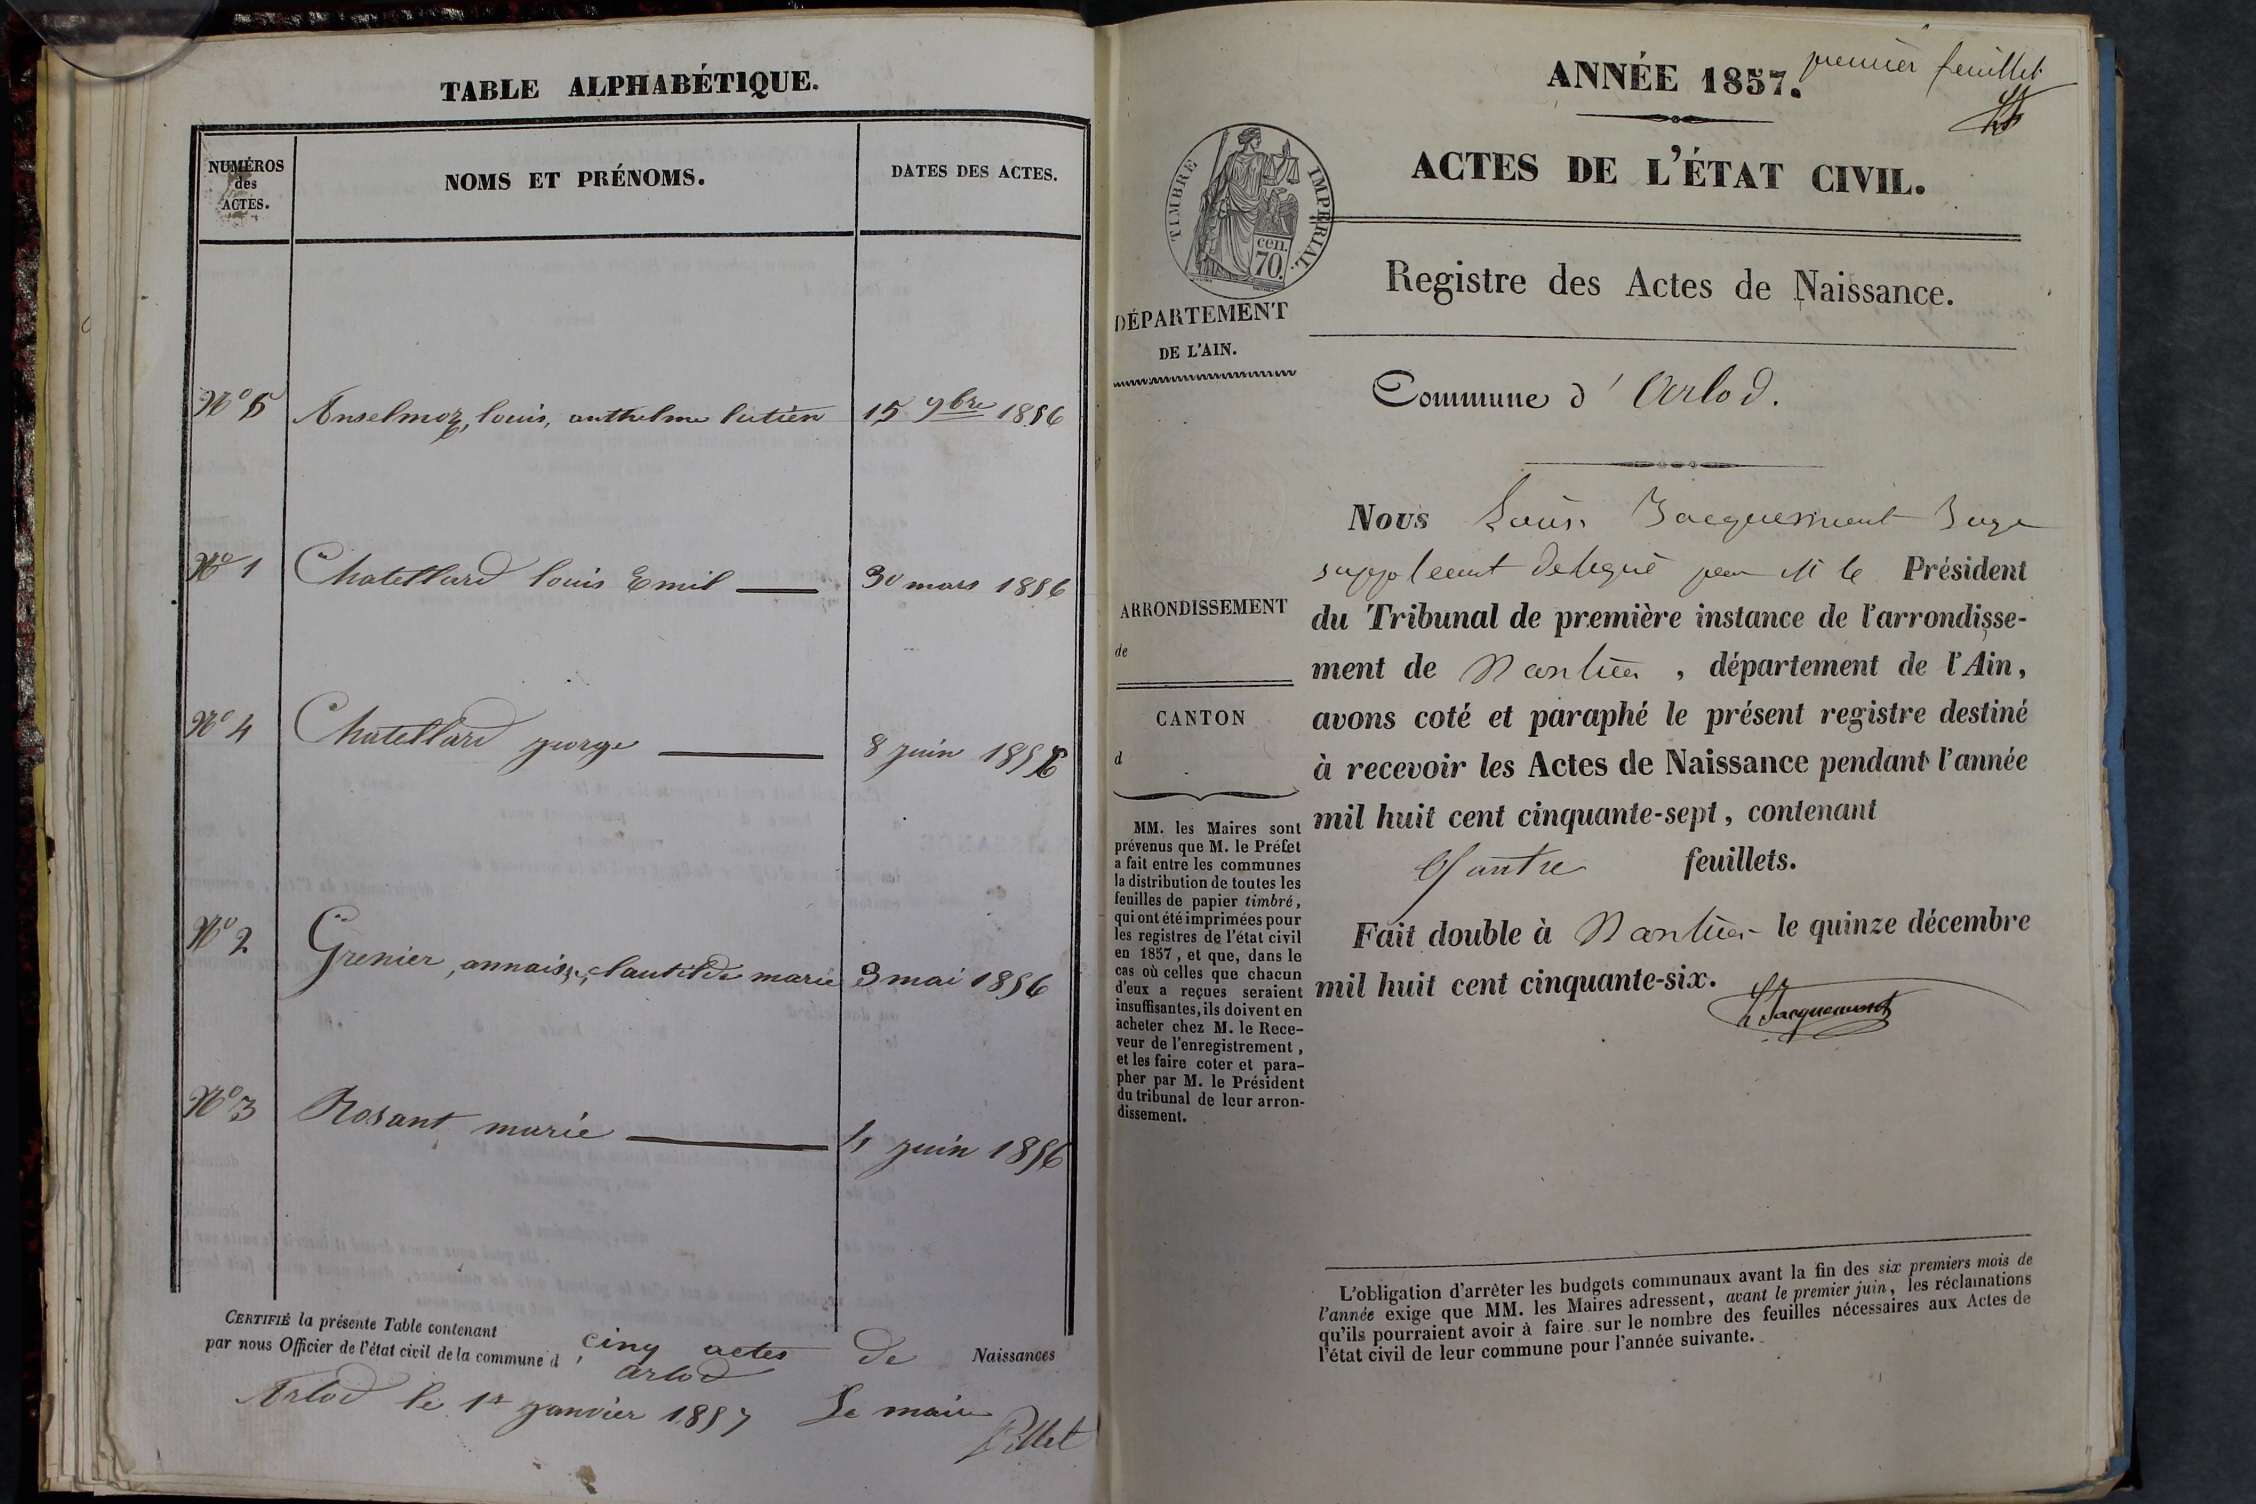 TABLE ALPHABÉTIQUE.
NUMÉROS
des
ACTES.
NOMS ET PRÉNOMS.
DATES DES ACTES.
N° 5 Anselmoz, louis, anthelme lutien 15 9bre 1856
N° 1 Chatellard louis Emil 30 mars 1856
N° 4 Chatellard george 8 juin 1856
N° 2 Grenier, annaise, clautilde marie 3 mai 1856
N° 3 Rosant marie 4 juin 1856
CERTIFIÉ la présente Table contenant cinq actes de Naissances
par nous Officier de l'état civil de la commune d' arlod
Arlod le 1er janvier 1857 Le maire
Pillet
premier feuillet
ANNÉE 1857.
ACTES DE L'ÉTAT CIVIL.
TIMBRE IMPÉRIAL.
cen.
70.
Registre des Actes de Naissance.
DÉPARTEMENT
DE L'AIN.
Commune d' Arlod.
ARRONDISSEMENT
de
CANTON
d
MM. les Maires sont
prévenus que M. le Préfet
a fait entre les communes
la distribution de toutes les
feuilles de papier timbré,
qui ont été imprimées pour
les registres de l'état civil
en 1857, et que, dans le
cas où celles que chacun
d'eux a reçues seraient
insuffisantes, ils doivent en
acheter chez M. le Rece-
veur de l'enregistrement,
et les faire coter et para-
pher par M. le Président
du tribunal de leur arron-
dissement.
Nous Louis Jacquemont Juge
suppléant délégué par M le Président
du Tribunal de première instance de l'arrondisse-
ment de Nantua, département de l'Ain,
avons coté et paraphé le présent registre destiné
à recevoir les Actes de Naissance pendant l'année
mil huit cent cinquante-sept, contenant
feuillets.
Fait double à Nantua le quinze décembre
mil huit cent cinquante-six.
L Jacquemont
L'obligation d'arrêter les budgets communaux avant la fin des six premiers mois de
l'année exige que MM. les Maires adressent, avant le premier juin, les réclamations
qu'ils pourraient avoir à faire sur le nombre des feuilles nécessaires aux Actes de
l'état civil de leur commune pour l'année suivante.